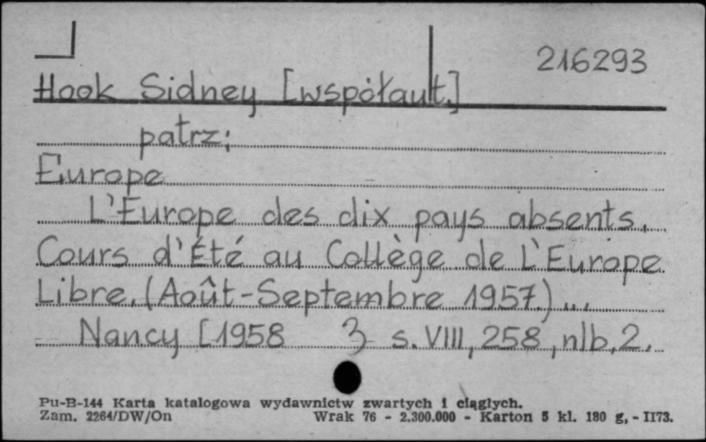 216293
Hook Sidney [współaut.]
patrz:
Europe
L'Europe des dix pays absents.
Cours d'Été au Collège de L'Europe
Libre. (Août-Septembre 1957.) ...
Nancy [1958 ] s. VIII, 258, nlb. 2.
Pu-B-144 Karta katalogowa wydawnictw zwartych i ciągłych.
Zam. 2264/DW/On Wrak 76 - 2.300.000 - Karton 5 kl. 180 g, - II73.